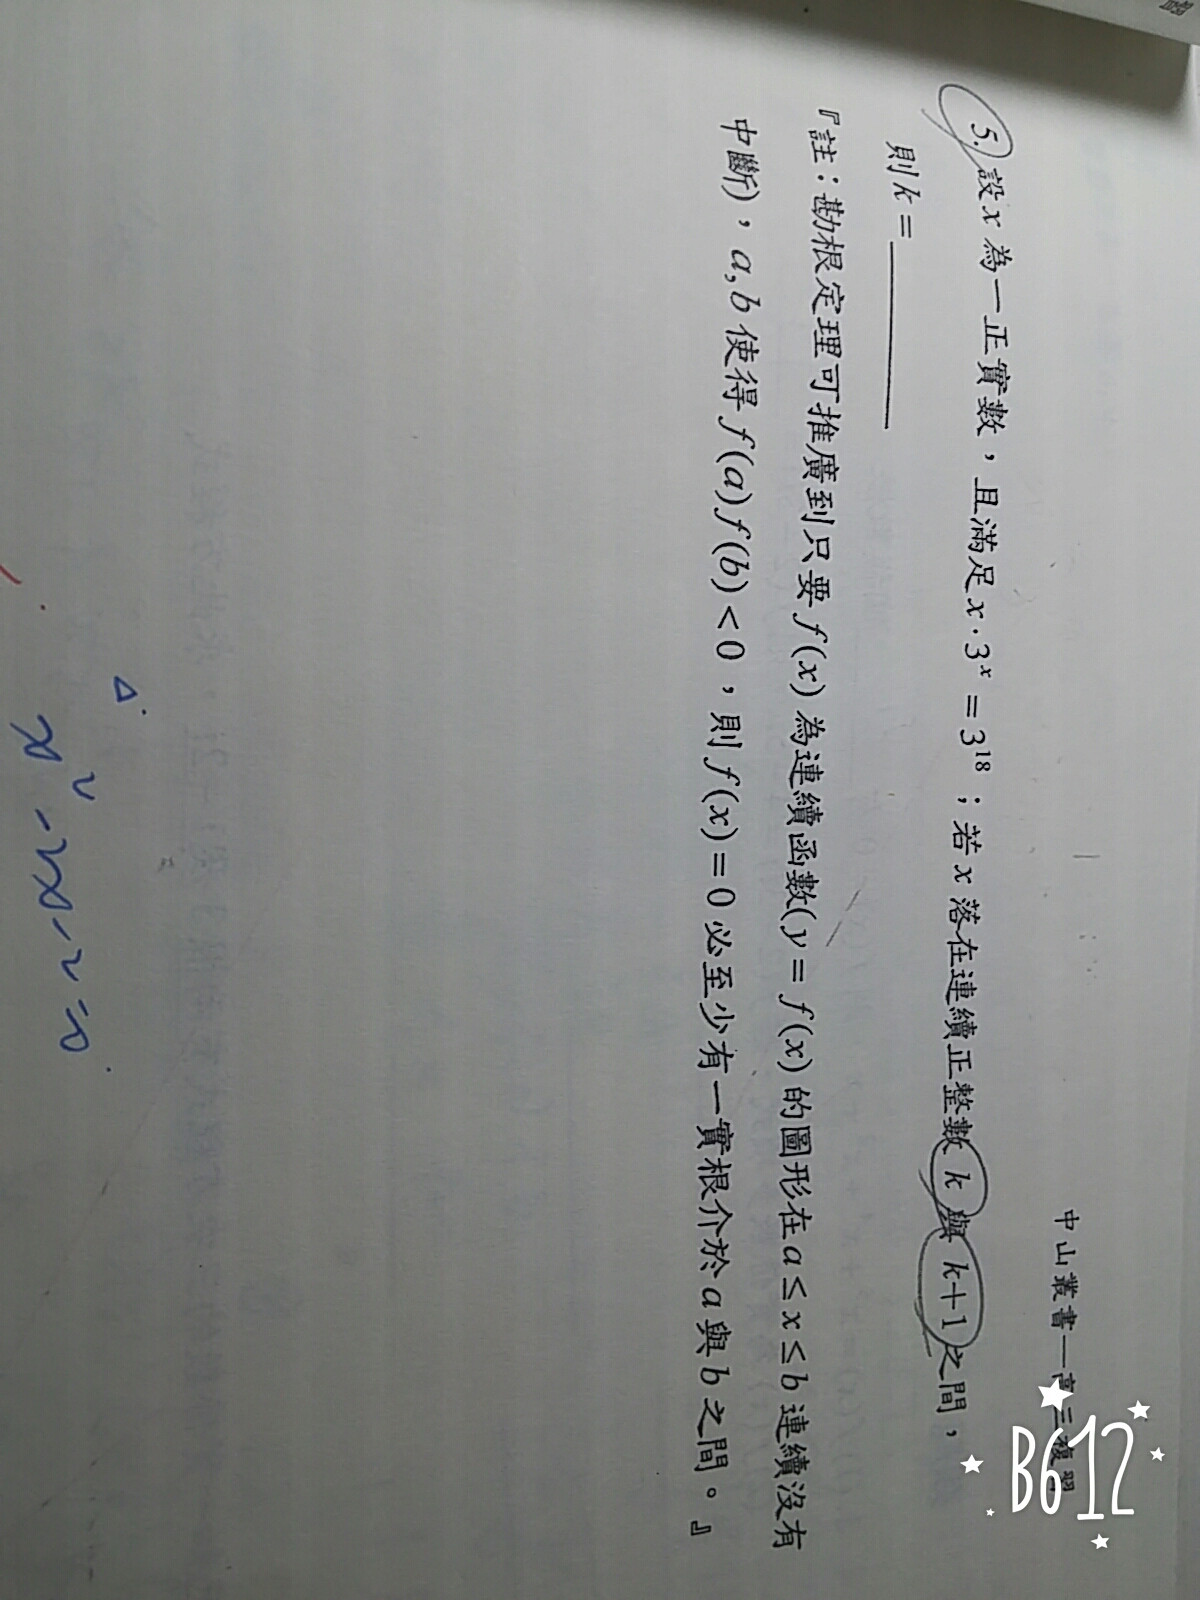 中山叢書—高三複習
5. 設 x 為一正實數，且滿足 x·3ˣ = 3¹⁸；若 x 落在連續正整數 k 與 k+1 之間，
則 k = ________
『註：勘根定理可推廣到只要 f(x) 為連續函數(y = f(x) 的圖形在 a ≤ x ≤ b 連續沒有
中斷)，a,b 使得 f(a)f(b) < 0，則 f(x) = 0 必至少有一實根介於 a 與 b 之間。』
B612